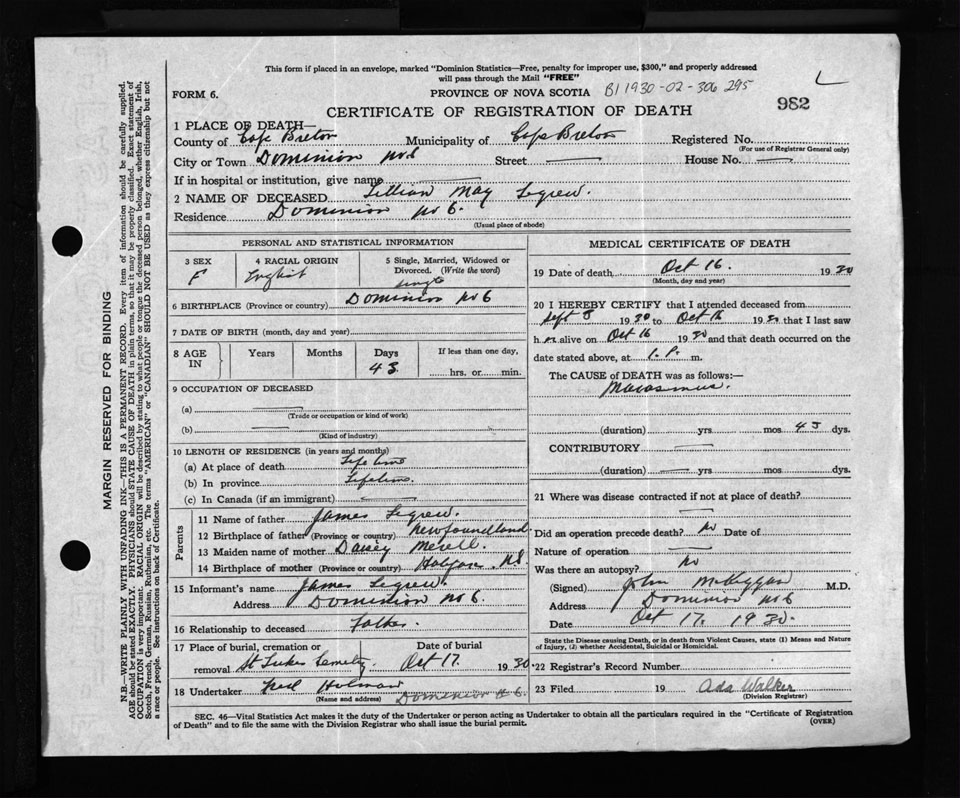 This form if placed in an envelope, marked "Dominion Statistics—Free, penalty for improper use, $300," and properly addressed
will pass through the Mail "FREE"
FORM 6. PROVINCE OF NOVA SCOTIA B1 1930-02-306 295
982
CERTIFICATE OF REGISTRATION OF DEATH
1 PLACE OF DEATH—
County of Cape Breton Municipality of Cape Breton Registered No.
(For use of Registrar General only)
City or Town Dominion No 6 Street — House No. —
If in hospital or institution, give name —
2 NAME OF DECEASED Lillian May Legrew.
Residence Dominion No 6.
(Usual place of abode)
PERSONAL AND STATISTICAL INFORMATION
3 SEX 4 RACIAL ORIGIN 5 Single, Married, Widowed or
Divorced. (Write the word)
F English single
6 BIRTHPLACE (Province or country) Dominion No 6
7 DATE OF BIRTH (month, day and year)
8 AGE IN Years Months Days If less than one day,
43 hrs. or min.
9 OCCUPATION OF DECEASED
(a) —
(Trade or occupation or kind of work)
(b) —
(Kind of industry)
10 LENGTH OF RESIDENCE (in years and months)
(a) At place of death Lifetime
(b) In province Lifetime.
(c) In Canada (if an immigrant) —
Parents
11 Name of father James Legrew.
12 Birthplace of father (Province or country) Newfoundland
13 Maiden name of mother Daisey
14 Birthplace of mother (Province or country) N.S.
15 Informant's name James Legrew.
Address Dominion No 6.
16 Relationship to deceased Father
17 Place of burial, cremation or Date of burial
removal St Lukes Cemetry. Oct 17. 1930
18 Undertaker Holman Dominion No 6.
(Name and address)
MEDICAL CERTIFICATE OF DEATH
19 Date of death Oct 16. 1930
(Month, day and year)
20 I HEREBY CERTIFY that I attended deceased from
Sept 1930 to Oct 16 1930 that I last saw
h er alive on Oct 16 1930 and that death occurred on the
date stated above, at 1. P. m.
The CAUSE of DEATH was as follows:—
Marasmus.
(duration) yrs — mos 43 dys.
CONTRIBUTORY —
(duration) — yrs. mos. dys.
21 Where was disease contracted if not at place of death?
—
Did an operation precede death? No Date of
Nature of operation —
Was there an autopsy? No
(Signed) John McKiggan M.D.
Address Dominion No 6
Date Oct 17. 1930.
State the Disease causing Death, or in death from Violent Causes, state (1) Means and Nature
of Injury, (2) whether Accidental, Suicidal or Homicidal.
22 Registrar's Record Number
23 Filed 19 Ada Walker
(Division Registrar)
SEC. 46—Vital Statistics Act makes it the duty of the Undertaker or person acting as Undertaker to obtain all the particulars required in the "Certificate of Registration
of Death" and to file the same with the Division Registrar who shall issue the burial permit. (OVER)
MARGIN RESERVED FOR BINDING
N.B.—WRITE PLAINLY WITH UNFADING INK—THIS IS A PERMANENT RECORD. Every item of information should be carefully supplied.
AGE should be stated EXACTLY. PHYSICIANS should STATE CAUSE OF DEATH in plain terms, so that it may be properly classified. Exact statement of
OCCUPATION is very important. RACIAL ORIGIN will be described by stating to what people or tongue the deceased person belonged, whether English, Irish,
Scotch, French, German, Russian, Ruthenian, etc. The terms "AMERICAN" or "CANADIAN" SHOULD NOT BE USED as they express citizenship but not
a race or people. See instructions on back of Certificate.